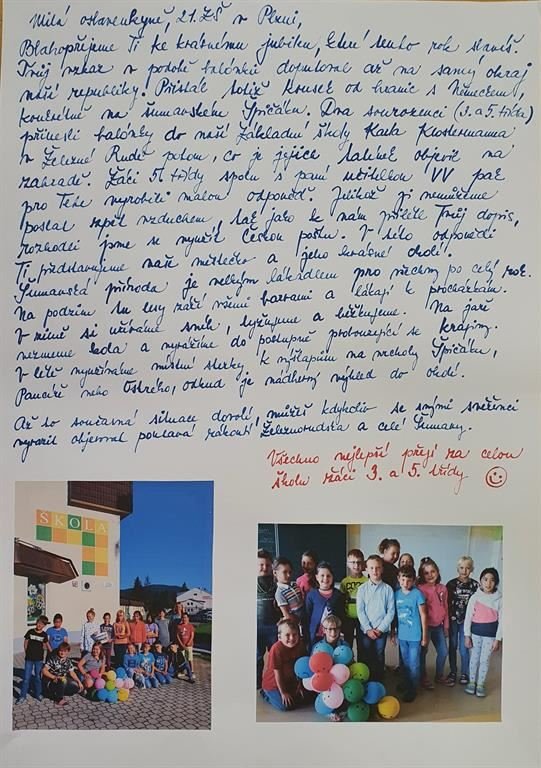 Milá oslavenkyně 21. ZŠ v Plzni,
Blahopřejeme Ti ke krásnému jubileu, které tento rok slavíš.
Tvůj vzkaz v podobě balónků doputoval až na samý okraj
naší republiky. Přistál totiž kousek od hranic s Německem,
konkrétně na šumavském Špičáku. Dva sourozenci (3. a 5. třída)
přinesli balónky do naší Základní školy Karla Klostermanna
v Železné Rudě potom, co je jejich tatínek objevil na
zahradě. Žáci 5. třídy spolu s paní učitelkou VV pak
pro Tebe vyrobili malou odpověď. Jelikož ji nemůžeme
poslat zpět vzduchem, tak jako k nám přiletěl Tvůj dopis,
rozhodli jsme se využít Českou poštu. V této odpovědi
Ti představujeme naše městečko a jeho krásné okolí.
Šumavská příroda je velkým lákadlem pro všechny po celý rok.
Na podzim tu lesy září všemi barvami a lákají k procházkám.
V zimě si užíváme sníh, lyžujeme a běžkujeme. Na jaře
vezmeme kola a vyrážíme do postupně probouzející se krajiny.
V létě využíváme místní stezky k výšlapům na vrcholy Špičáku,
Pancíře nebo Ostrého, odkud je nádherný výhled do okolí.
Až to současná situace dovolí, můžeš kdykoliv se svými svěřenci
vyrazit objevovat poutavá zákoutí Železnorudska a celé Šumavy.
Všechno nejlepší přejí za celou
školu žáci 3. a 5. třídy
ŠKOLA